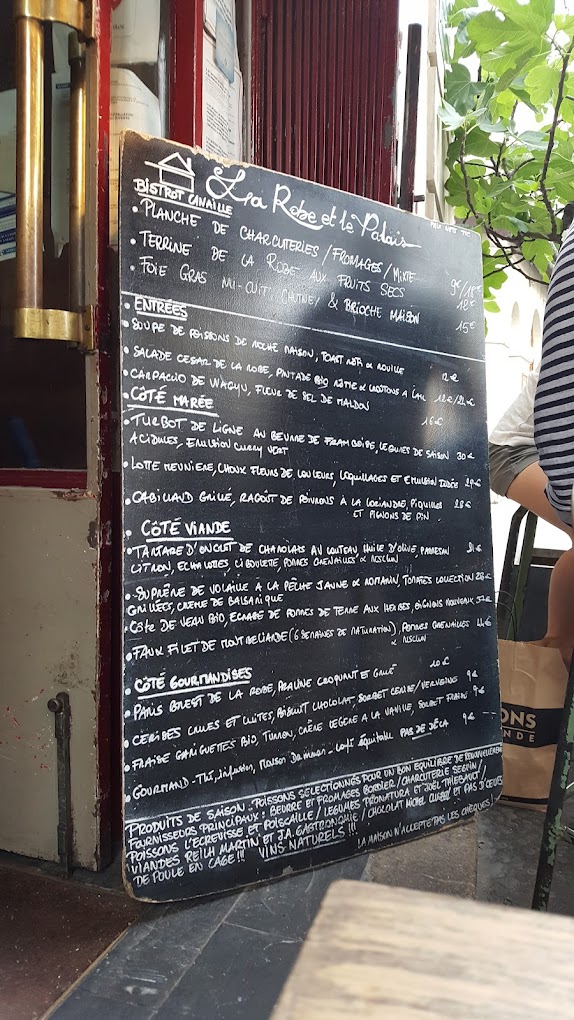 La Robe et le Palais
BISTROT CANAILLE
• PLANCHE DE CHARCUTERIES / FROMAGES / MIXTE 9€/18€
• TERRINE DE LA ROBE AUX FRUITS SECS 12€
• FOIE GRAS MI-CUIT, CHUTNEY & BRIOCHE MAISON 15€
• ENTRÉES
• SOUPE DE POISSONS DE ROCHE MAISON, TOAST & ROUILLE 12€
• SALADE CESAR DE LA ROBE, PINTADE BIO RÔTIE & CROUTONS A L'AIL 12€/21€
• CARPACCIO DE WAGYU, FLEUR DE SEL DE MALDON 16€
• CÔTÉ MARÉE
• TURBOT DE LIGNE AU BEURRE DE FRAMBOISE, LEGUMES DE SAISON 30€
ACIDULES, EMULSION CURRY VERT
• LOTTE MEUNIERE, CHOUX FLEURS DE COULEURS, COQUILLAGES ET EMULSION IODÉE 29€
• CABILLAUD GRILLÉ, RAGOÛT DE POIVRONS À LA CORIANDRE, PIQUILLOS 28€
ET PIGNONS DE PIN
• CÔTÉ VIANDE
• TARTARE D'ONGLET DE CHAROLAIS AU COUTEAU, HUILE D'OLIVE, PARMESAN 21€
CITRON, ECHALOTES, CIBOULETTE, POMMES GRENAILLES & MESCLUN
• SUPRÊME DE VOLAILLE À LA PÊCHE JAUNE & ROMARIN, TOMATES COLLECTION 28€
GRILLÉES, CREME DE BALSAMIQUE
• CÔTE DE VEAU BIO, ECRASÉ DE POMMES DE TERRE AUX HERBES, OIGNONS NOUVEAUX 37€
• FAUX FILET DE MONTBELIARDE (6 SEMAINES DE MATURATION), POMMES GRENAILLES 44€
& MESCLUN
• CÔTÉ GOURMANDISES
• PARIS BREST DE LA ROBE, PRALINE CROQUANT ET GLACÉ 10€
• CERISES CRUES ET CUITES, BISCUIT CHOCOLAT, SORBET CERISE/VERVEINE 9€
• FRAISE GARIGUETTES BIO, TIMON, CRÈME LEGERE A LA VANILLE, SORBET FRAISE 9€
• GOURMAND - Thé, infusion, Maison Dammann - Café équitable PAS DE DÉCA 9€
PRODUITS DE SAISON - POISSONS SELECTIONNÉS POUR UN BON EQUILIBRE DE RENOUVELLEMENT
FOURNISSEURS PRINCIPAUX : BEURRE ET FROMAGES BORDIER / CHARCUTERIE SEGUIN /
POISSONS L'ECREVISSE ET POISCAILLE / LEGUMES PRONATURA ET JOËL THIEBAULT /
VIANDES REILH MARTIN ET J.A. GASTRONOMIE / CHOCOLAT MICHEL CLUIZEL ET PAS D'OEUFS
DE POULE EN CAGE !!! VINS NATURELS !!! LA MAISON N'ACCEPTE PAS LES CHEQUES !
ONS
NDE